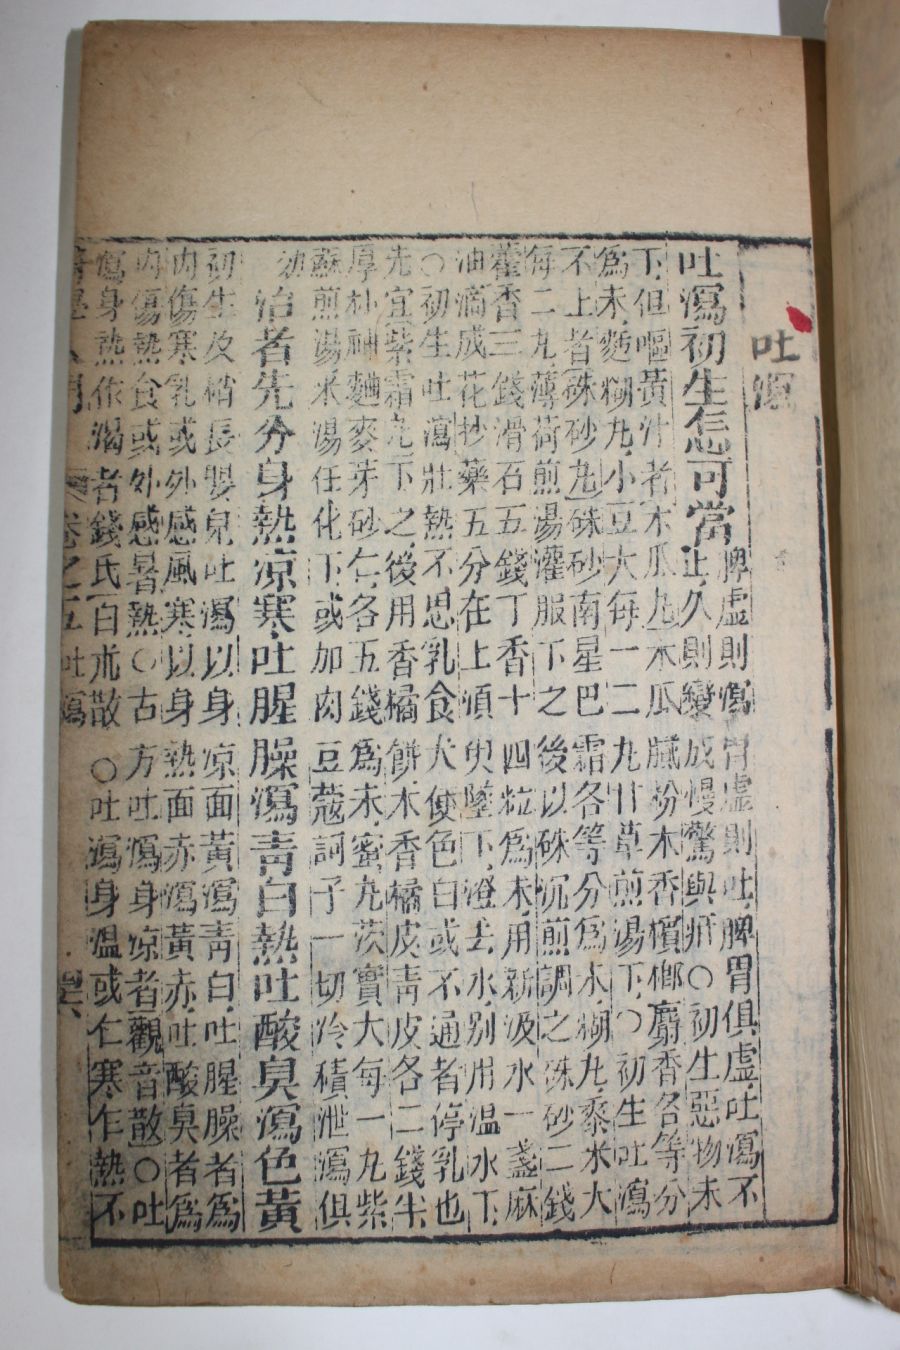 吐瀉
吐瀉初生怎可當
脾虛則瀉胃虛則吐脾胃俱虛吐瀉不
止久則變成慢驚與疳○初生惡物未
下但嘔黃汁者木瓜丸木瓜膩粉木香檳榔麝香各等分
為末麪糊丸小豆大每一二丸甘草煎湯下○初生吐瀉
不上者硃砂丸硃砂南星巴霜各等分為末糊丸黍米大
每二丸薄荷煎湯灌服下之後以硃沉煎調之硃砂二錢
藿香三錢滑石五錢丁香十四粒為末用新汲水一盞麻
油滴成花抄藥五分在上須臾墜下澄去水別用温水下
○初生吐瀉壯熱不思乳食大便色白或不通者停乳也
先宜紫霜丸下之後用香橘餅木香橘皮青皮各二錢半
厚朴神麯麥芽砂仁各五錢為末蜜丸芡實大每一丸紫
蘇煎湯米湯任化下或加肉豆蔻訶子一切冷積泄瀉俱
効
治者先分身熱凉寒吐腥臊瀉青白熱吐酸臭瀉色黃
初生及稍長嬰兒吐瀉以身凉面黃瀉青白吐腥臊者為
內傷寒乳或外感風寒以身熱面赤瀉黃赤吐酸臭者為
內傷熱食或外感暑熱○古方吐瀉身凉者觀音散○吐
瀉身熱作渴者錢氏白朮散○吐瀉身温或乍寒乍熱不
醫學入門 卷之五 吐瀉